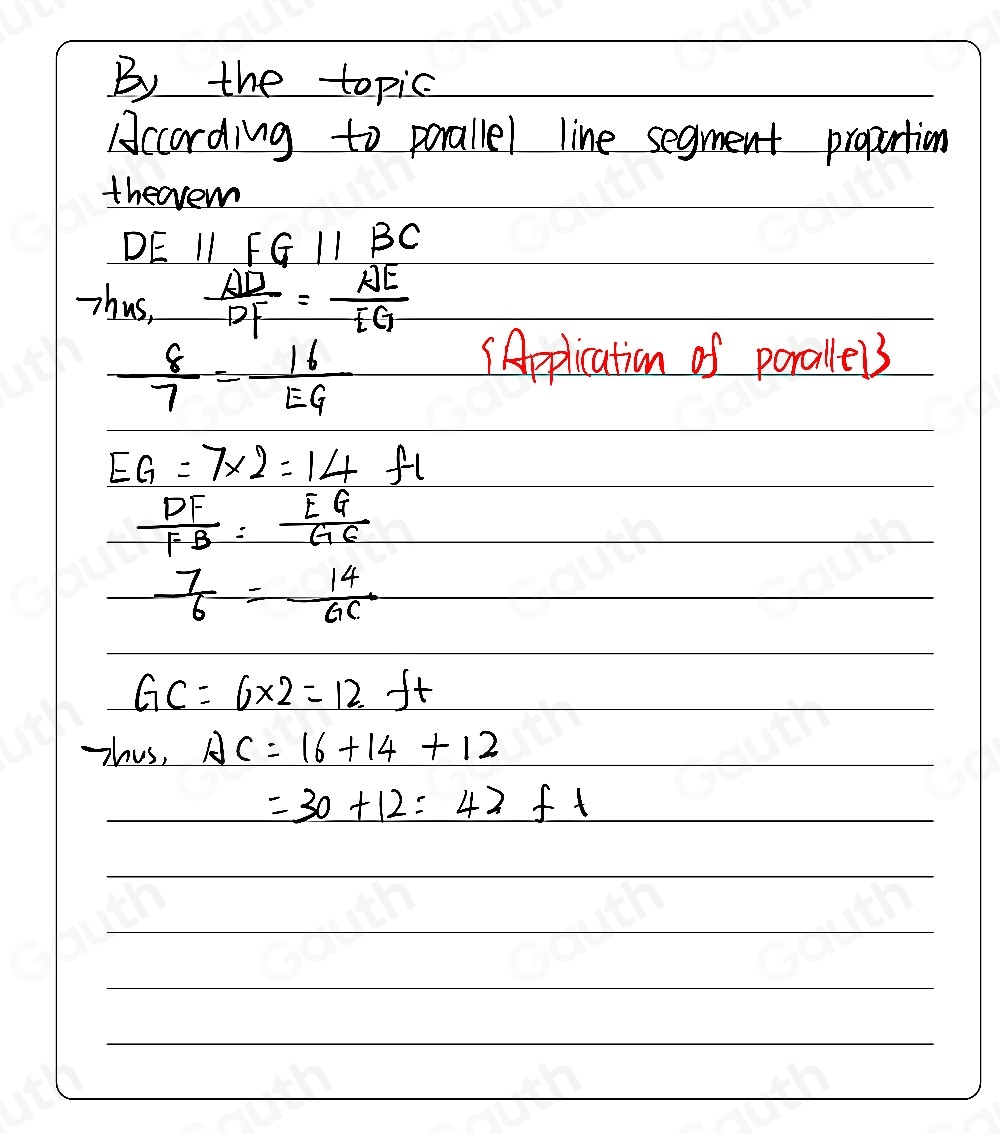 By the topic
According to parallel line segment proportion
theorem
DE || FG || BC
Thus, AD/DF = AE/EG
8/7 = 16/EG {Application of parallel}
EG = 7×2 = 14 ft
DF/FB = EG/GC
7/6 = 14/GC
GC = 6×2 = 12 ft
Thus, AC = 16 + 14 + 12
= 30 + 12 = 42 ft